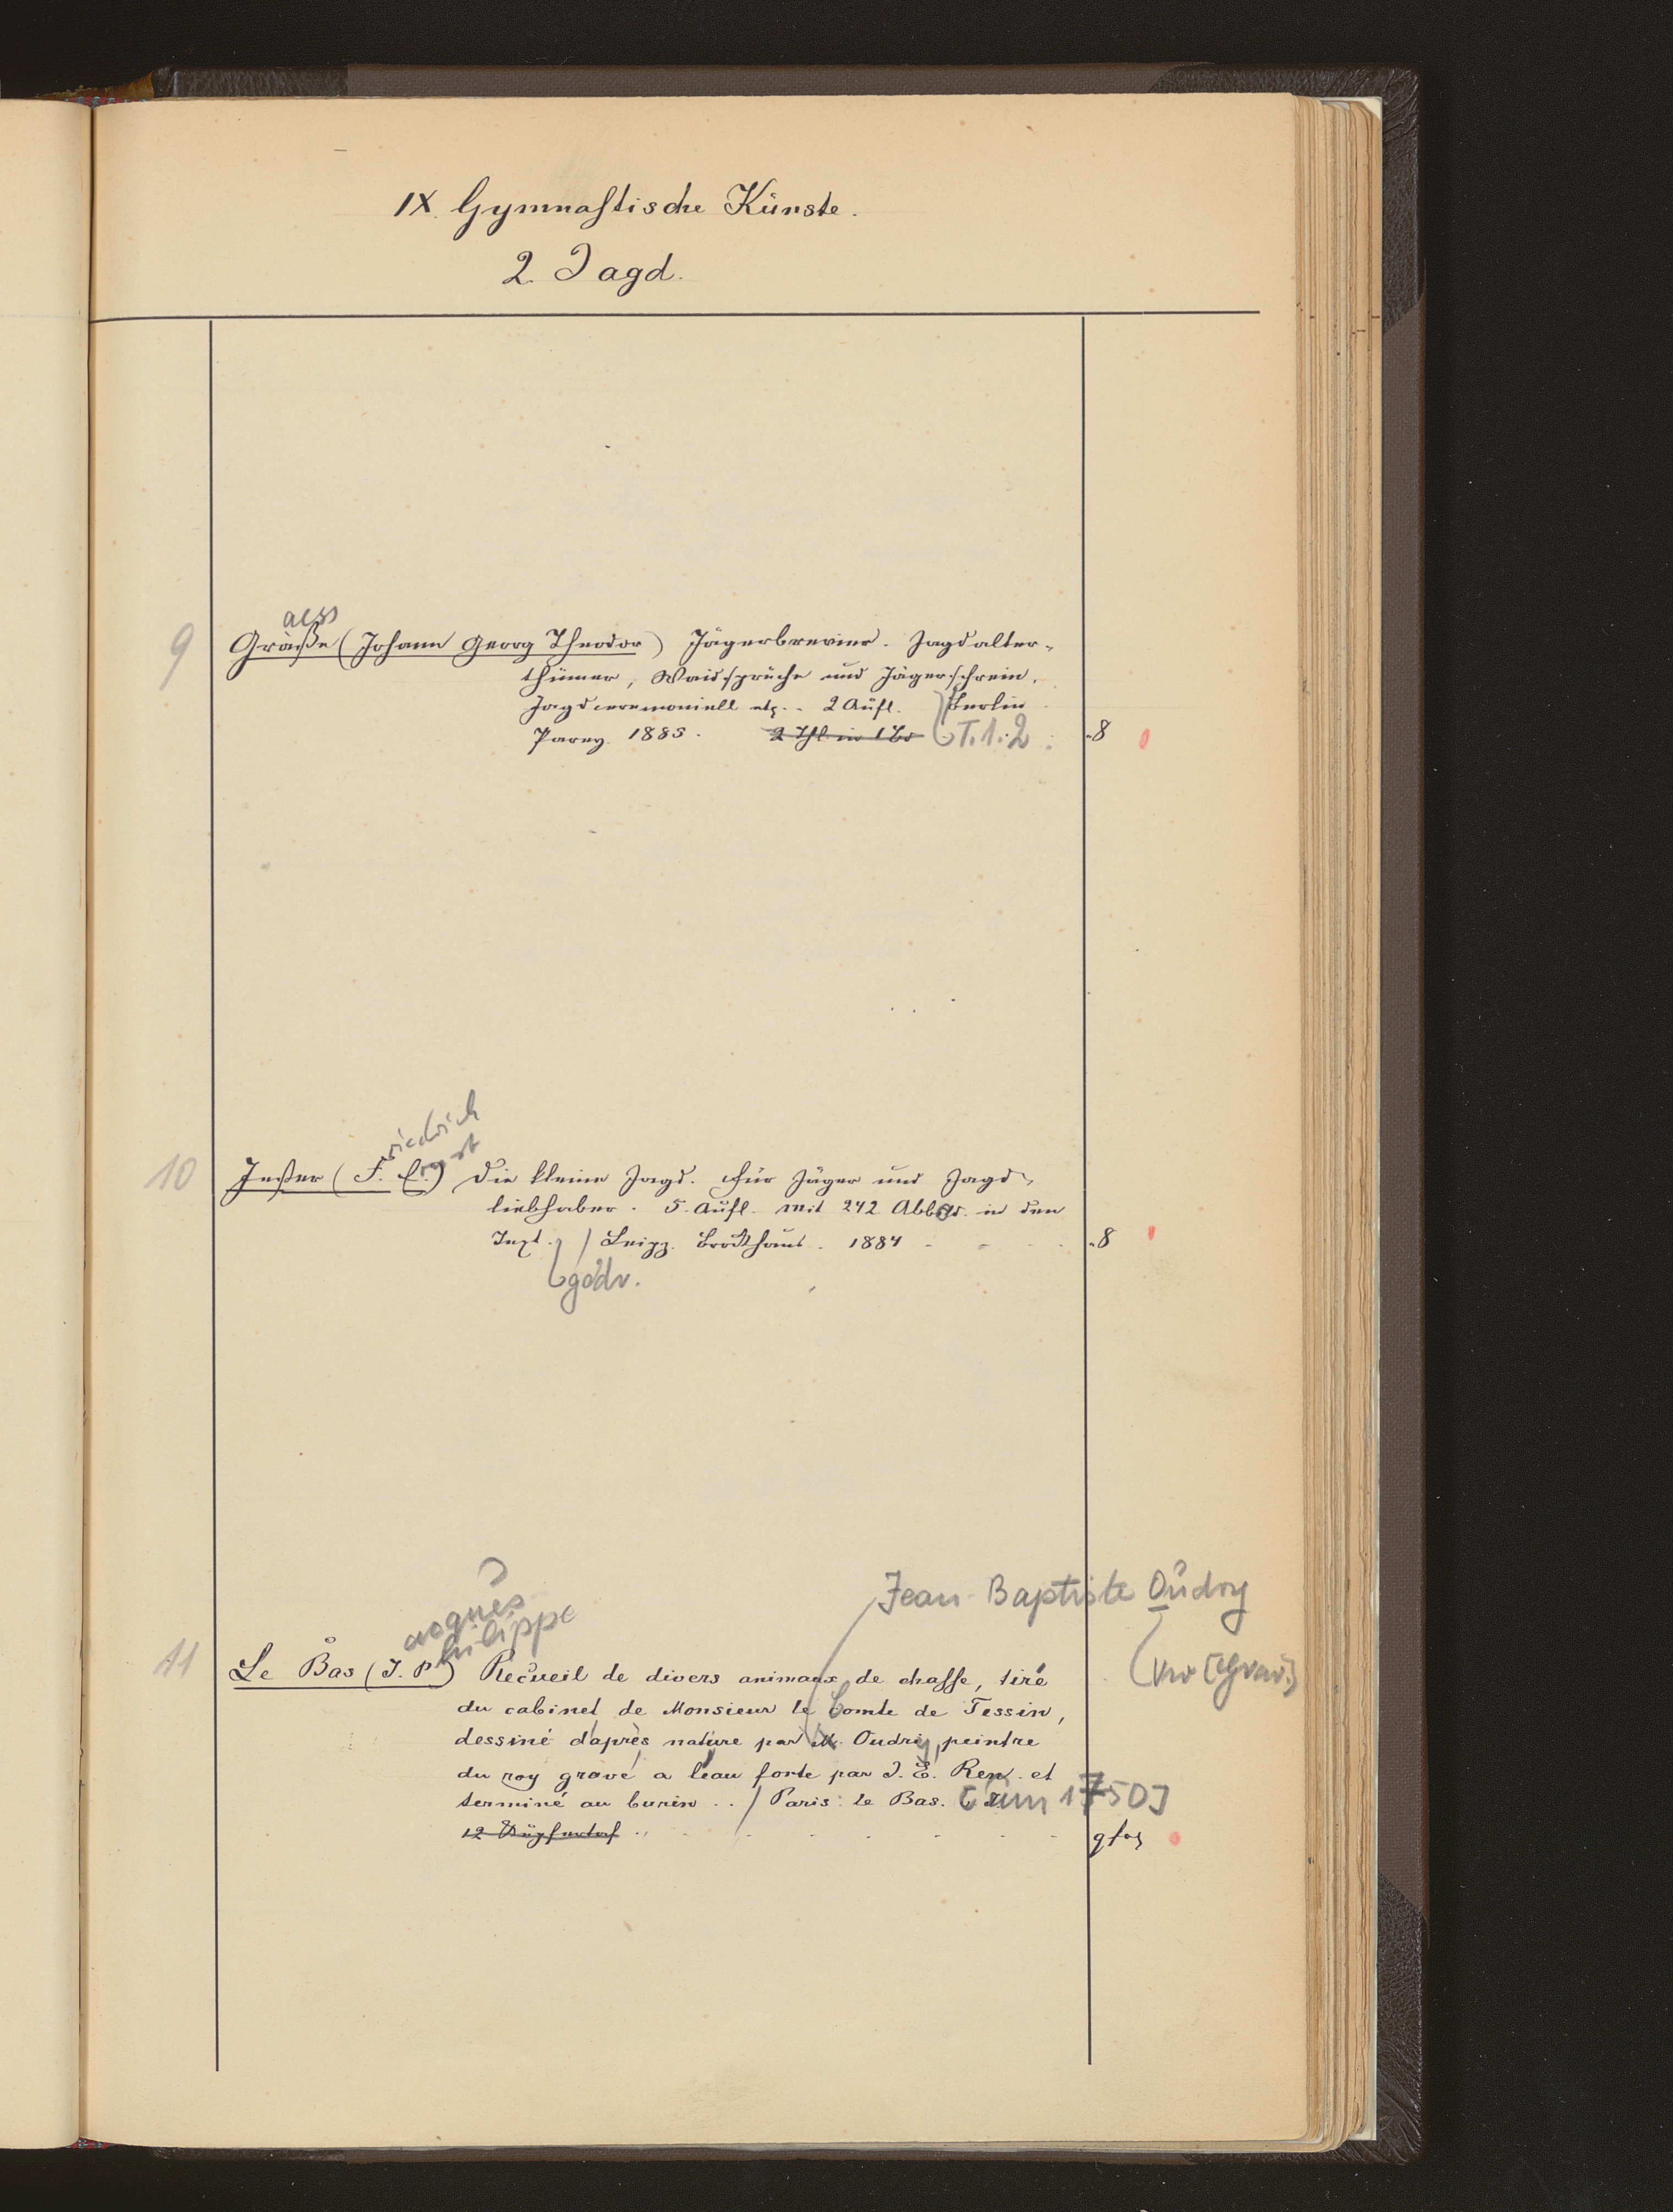 IX. Gymnastische Künste.
2. Jagd.
aess
9 Gräße (Johann Georg Theodor) Jägerbrevier. Jagdalter-
thümer, Waidsprüche und Jägerschrein,
Jagdceremoniell etc. 2 Aufl. Berlin
Parey. 1885. 2 Thl. in 1 Bd T. 1. 2. 8
riedrich
rnst
10 Jester (F. E.) Die kleine Jagd. Für Jäger und Jagd-
liebhaber. 5. Aufl. Mit 242 Abb. in den
Text. / Leipz. Brockhaus. 1884 8
Jean-Baptiste Oudry
acques
hilippe
11 Le Bas (J. P.) Recueil de divers animaux de chasse, tiré
du cabinet de Monsieur le Comte de Tessin,
dessiné d'après nature par M. Oudry, peintre
du roy gravé a l'eau forte par J. E. Rex. et
terminé au burin .. / Paris: le Bas. [um 1750]
12 Kupfertaf. qfol